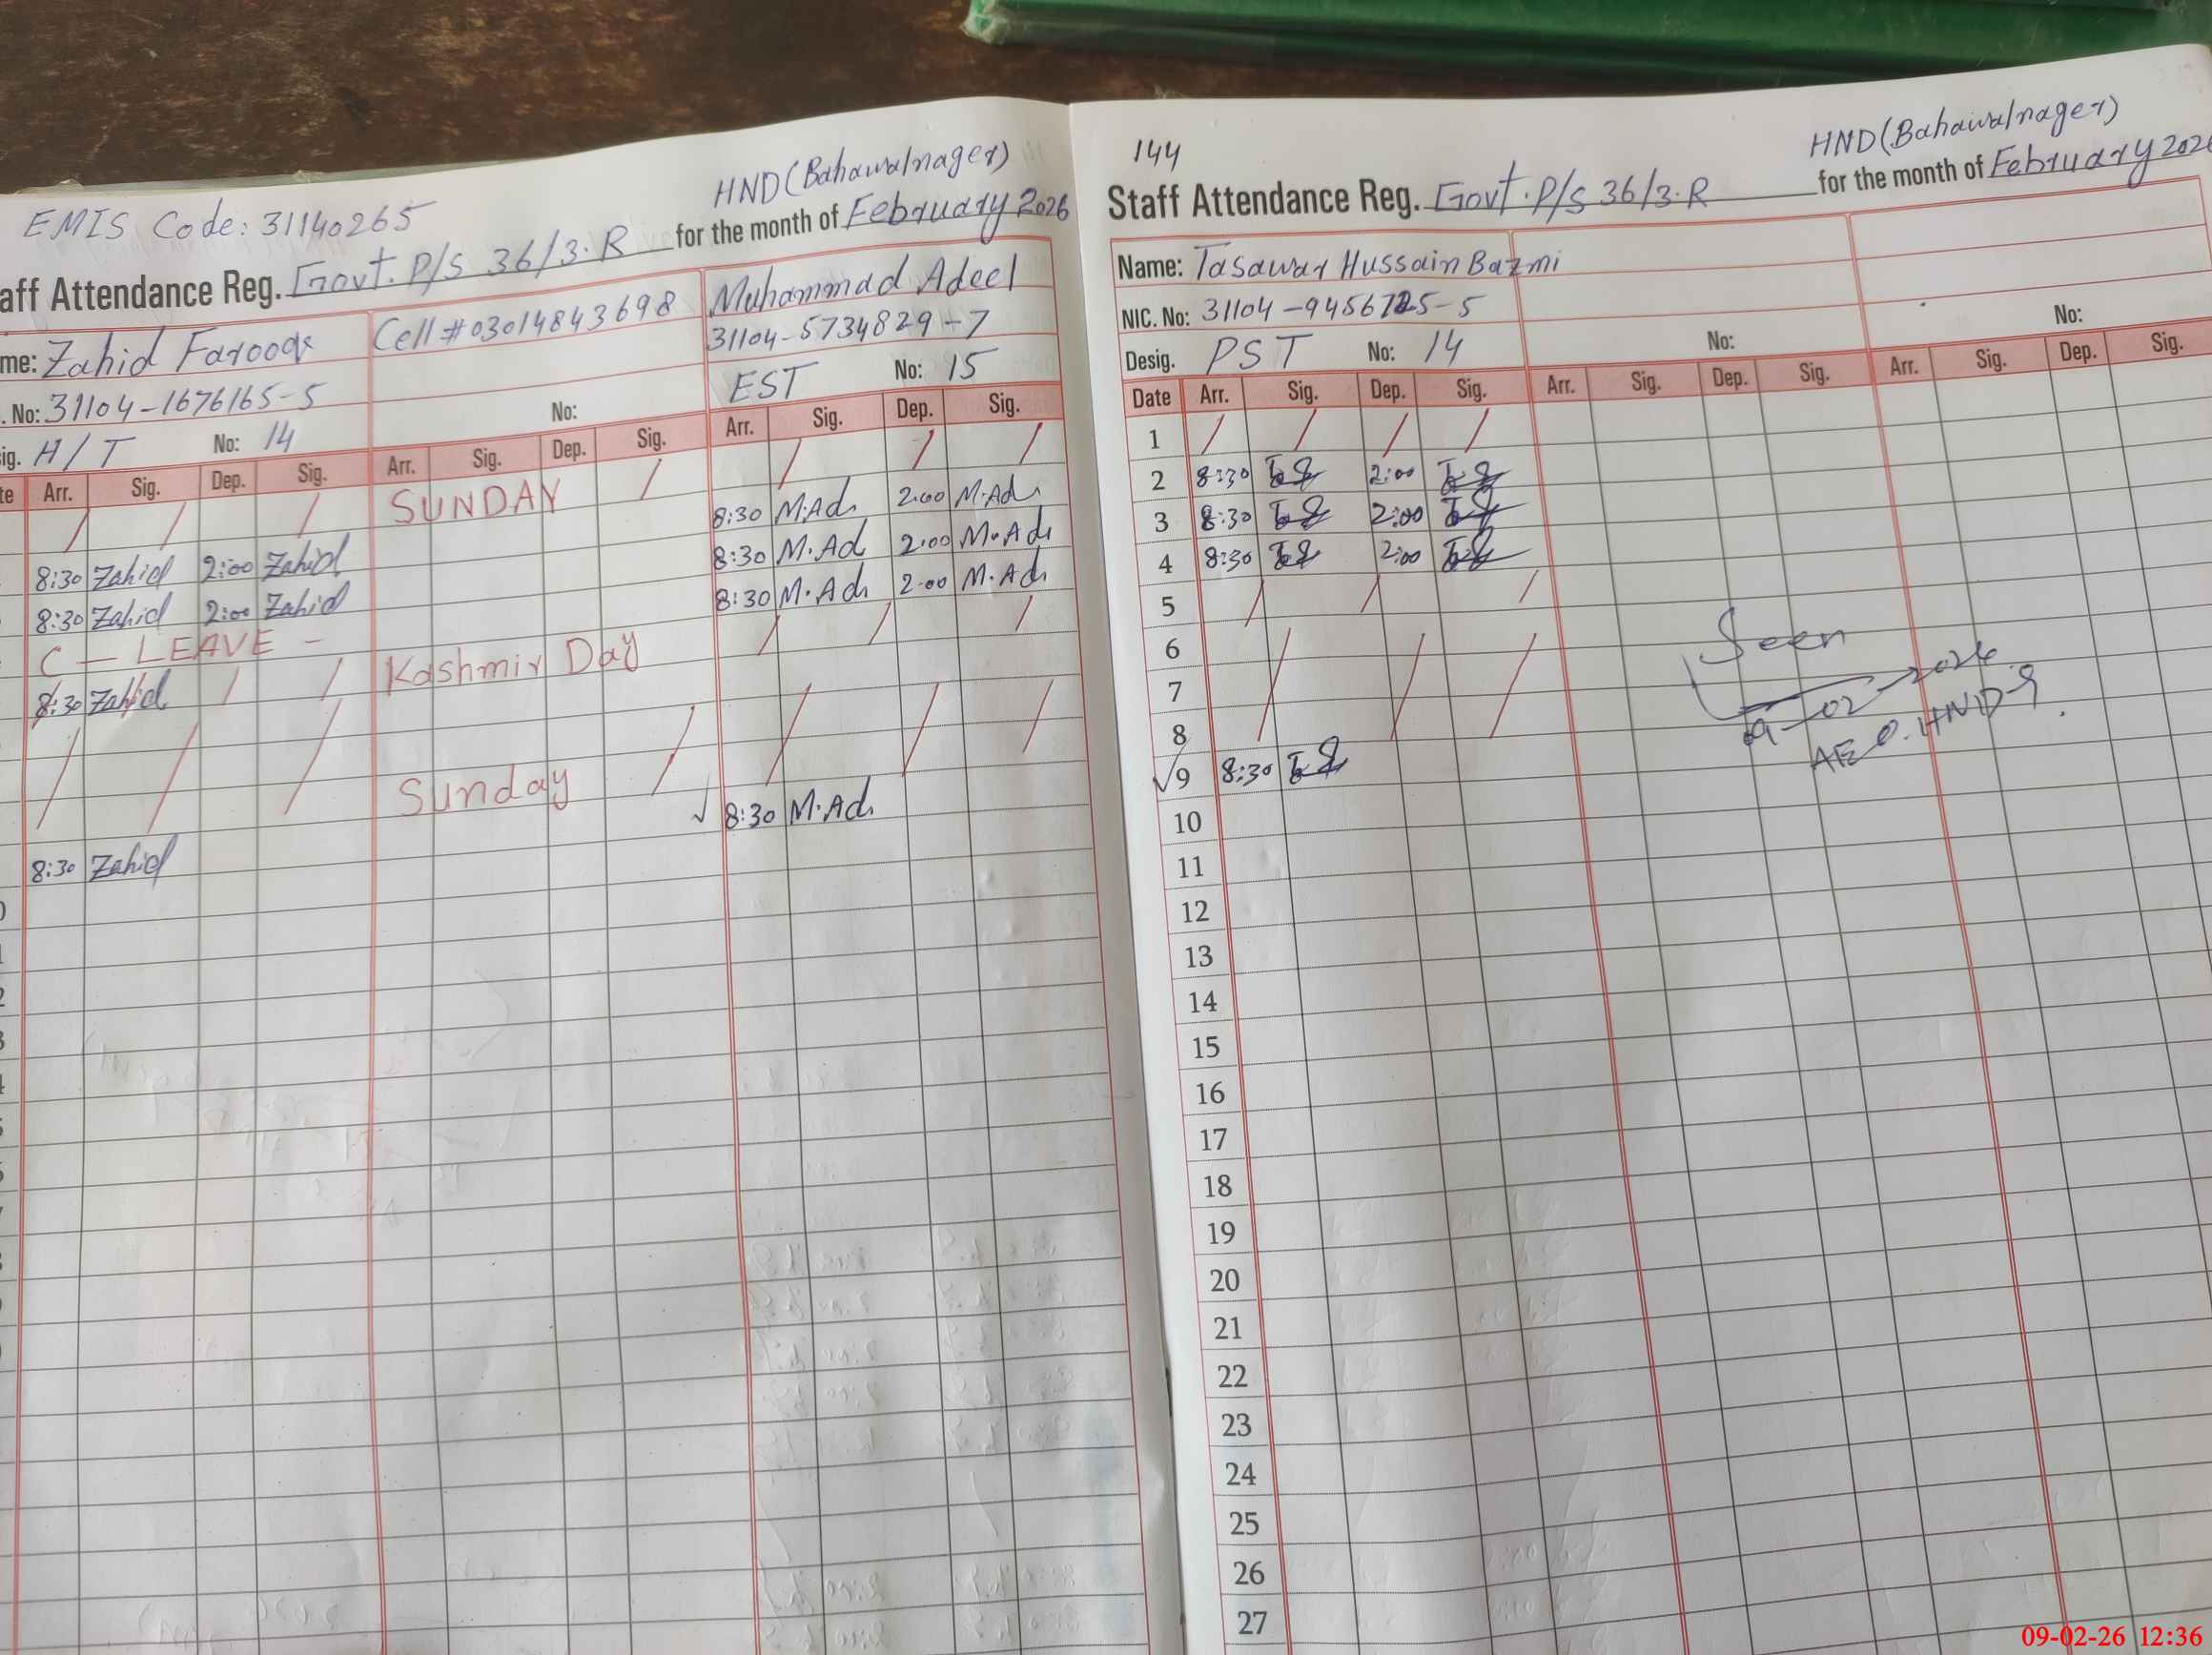 HND(Bahawalnager)
EMIS Code: 31140265
aff Attendance Reg. Govt. P/S 36/3.R for the month of February 2026
me: Zahid Farooq Cell # 03014843698 Muhammad Adeel
. No: 31104-1676165-5 31104-5734829-7
ig. H/T No: 14 No: EST No: 15
te Arr. Sig. Dep. Sig. Arr. Sig. Dep. Sig. Arr. Sig. Dep. Sig.
SUNDAY
8:30 Zahid 2:00 Zahid 8:30 M.Ad 2:00 M.Ad
8:30 Zahid 2:00 Zahid 8:30 M.Ad 2:00 M.Ad
C - LEAVE - 8:30 M.Ad 2:00 M.Ad
8:30 Zahid Kashmir Day
Sunday
8:30 Zahid 8:30 M.Ad
144
HND(Bahawalnager)
Staff Attendance Reg. Govt. P/S 36/3.R for the month of February 202
Name: Tasawar Hussain Bazmi
NIC. No: 31104-9456725-5
Desig. PST No: 14 No: No:
Date Arr. Sig. Dep. Sig. Arr. Sig. Dep. Sig. Arr. Sig. Dep. Sig.
1
2 8:30 2:00
3 8:30 2:00
4 8:30 2:00
5
6
7
8
9 8:30
Seen
09-02-2026
AEO. HND-9
10
11
12
13
14
15
16
17
18
19
20
21
22
23
24
25
26
27
09-02-26 12:36